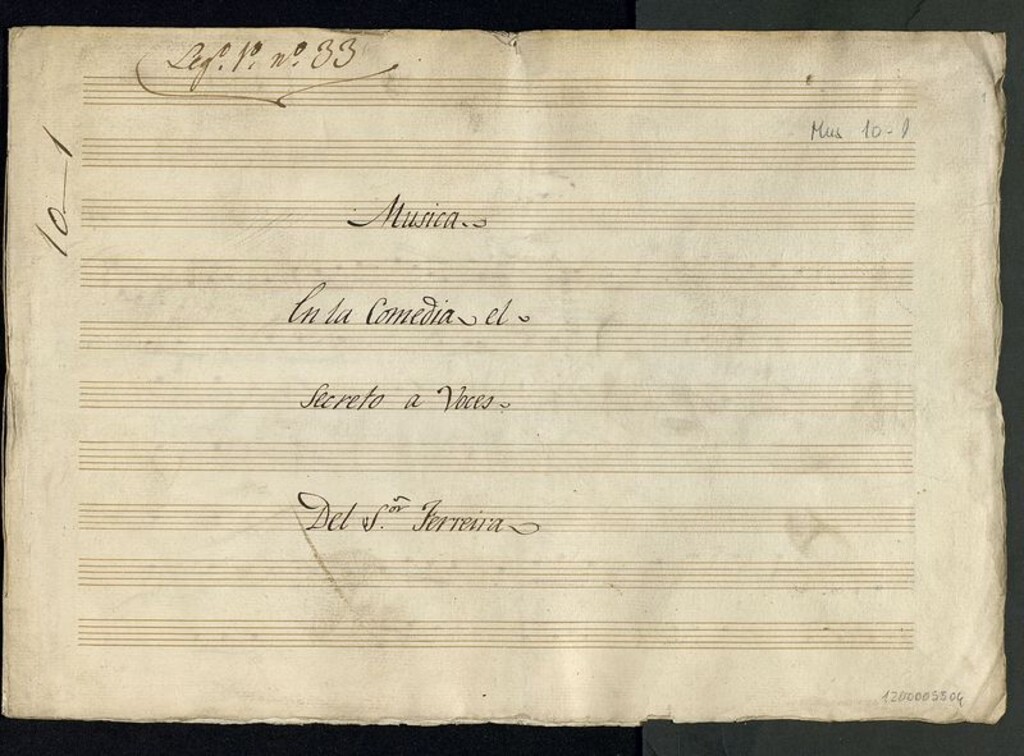 Legº. 1º. nº. 33
Mus 10-1
10-1
Musica.
En la Comedia el
Secreto a Voces.
Del S.or Ferreira
1200005804